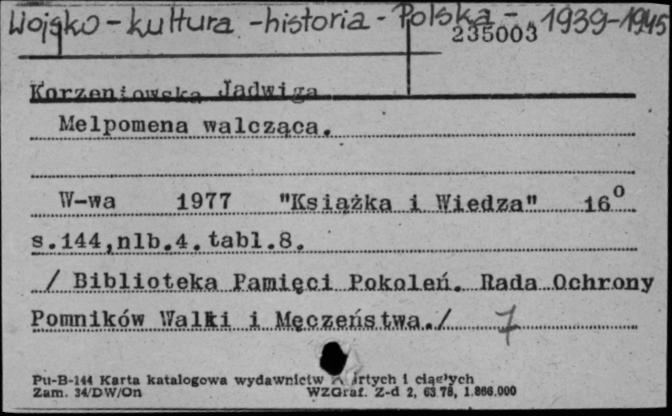 Wojsko - kultura - historia - Polska - 1939-1945
235003
Korzeniowska Jadwiga
Melpomena walcząca.
W-wa 1977 "Książka i Wiedza" 16°
s.144,nlb.4.tabl.8.
/ Biblioteka Pamięci Pokoleń. Rada Ochrony
Pomników Walki i Męczeństwa./ 7
Pu-B-144 Karta katalogowa wydawnictw i ciągłych
Zam. 34/DW/On WZGraf. Z-d 2, 63 78, 1.866.000